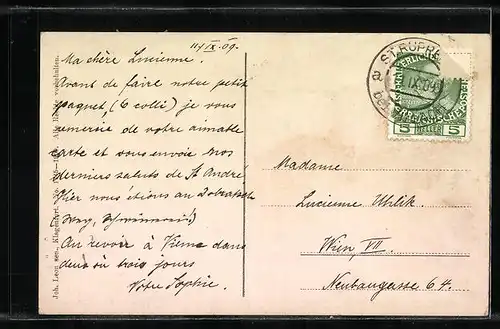 11/IX. 09.
Ma chère Lucienne.
Avant de faire notre petit
paquet, (6 colli) je vous
remercie de votre aimable
carte et vous envoie nos
derniers saluts de St André
Hier nous étions au
weg,
Au revoir à Vienne dans
deux où trois jours
Votre Sophie.
Joh. Leon sen., Klagenfurt. Alle Rechte vorbehalten.
ST. RUPRE
IX. 09
5 HELLER 5
Madame
Lucienne Uhlik.
Wien, VII.
Neubaugasse 64.